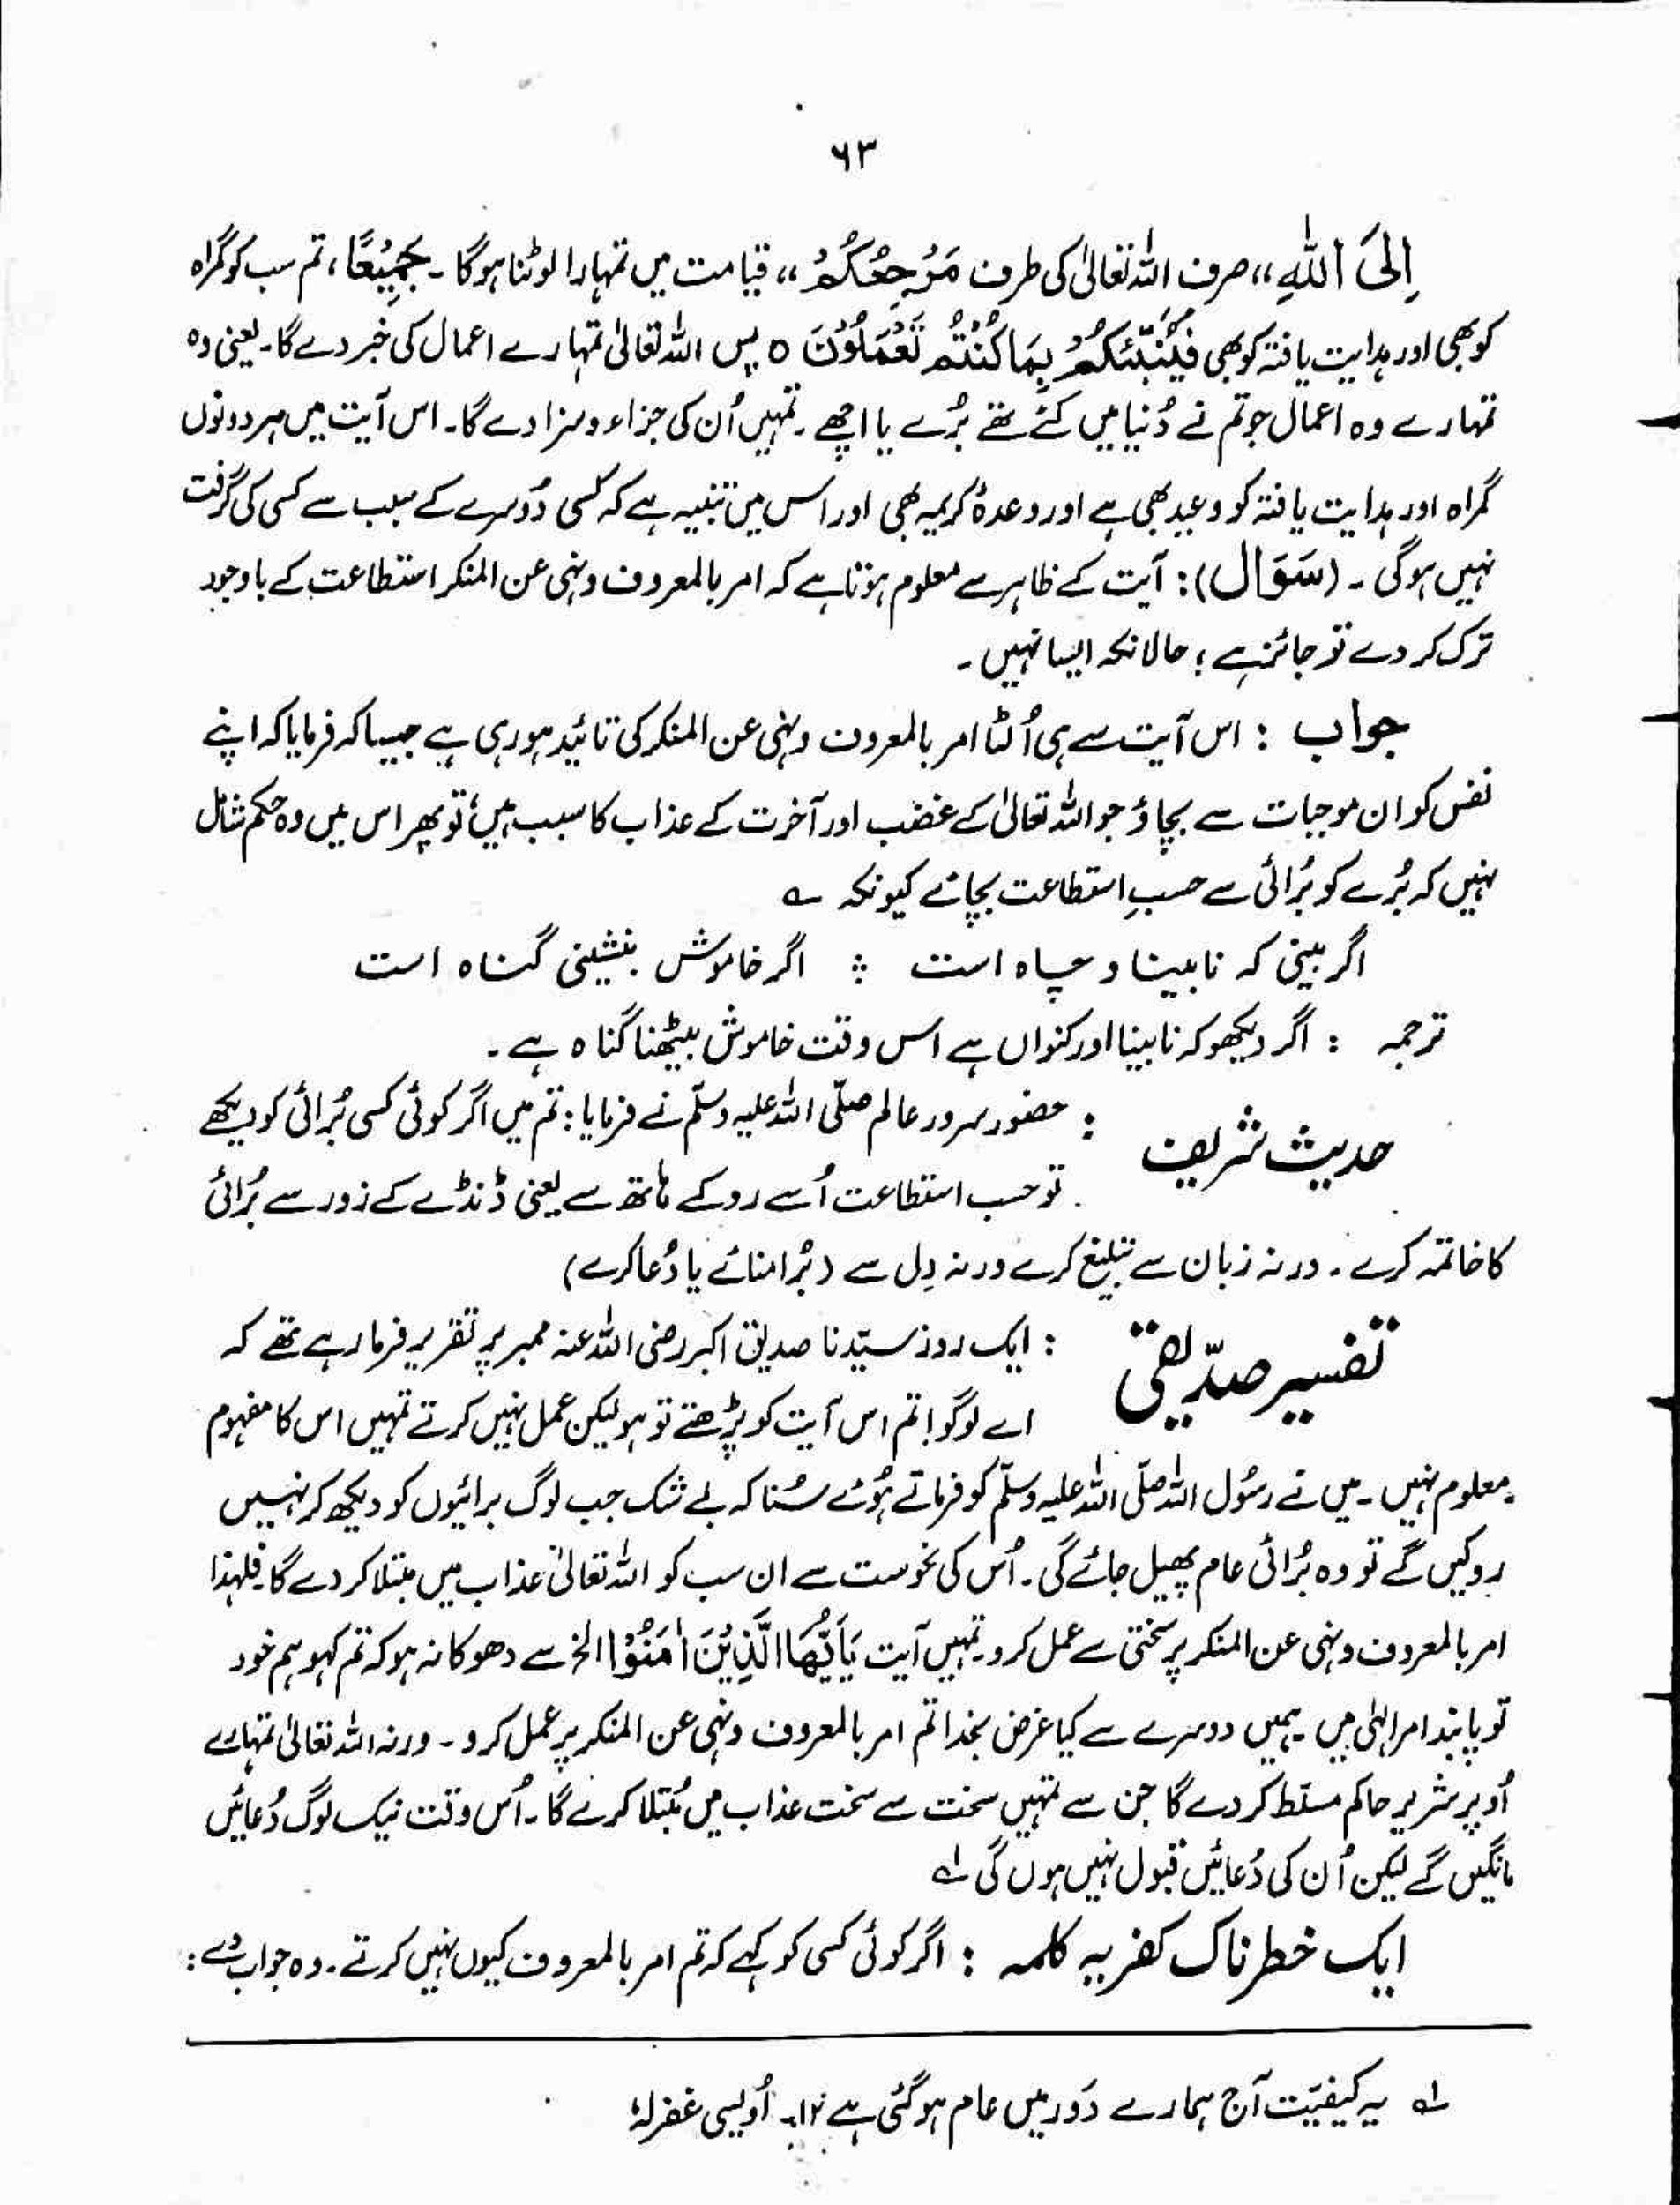 ۶۳
اِلَی اللّٰہِ ،، صرف اللہ تعالیٰ کی طرف مَرْجِعُکُمْ ،، قیامت میں تمہارا لوٹنا ہوگا ۔ جَمِیْعًا ، تم سب کو گمراہ
کو بھی اور ہدایت یافتہ کو بھی فَیُنَبِّئُکُمْ بِمَا کُنْتُمْ تَعْمَلُوْنَ ○ پس اللہ تعالیٰ تمہارے اعمال کی خبر دے گا ۔ یعنی وہ
تمہارے وہ اعمال جو تم نے دُنیا میں کئے تھے بُرے یا اچھے ۔ تمہیں اُن کی جزاء و سزا دے گا ۔ اس آیت میں ہر دونوں
گمراہ اور ہدایت یافتہ کو وعید بھی ہے اور وعدۂ کریمہ بھی اور اس میں تنبیہ ہے کہ کسی دُوسرے کے سبب سے کسی کی گرفت
نہیں ہوگی ۔ (سَوَال) : آیت کے ظاہر سے معلوم ہوتا ہے کہ امر بالمعروف و نہی عن المنکر استطاعت کے باوجود
ترک کر دے تو جائز ہے ؛ حالانکہ ایسا نہیں ۔
جواب : اس آیت سے ہی اُلٹا امر بالمعروف و نہی عن المنکر کی تائید ہو رہی ہے جیسا کہ فرمایا کہ اپنے
نفس کو ان موجبات سے بچاؤ جو اللہ تعالیٰ کے غضب اور آخرت کے عذاب کا سبب ہیں تو پھر اس میں وہ حکم شامل
نہیں کہ بُرے کو بُرائی سے حسبِ استطاعت بچائے کیونکہ ؎
اگر بینی کہ نابینا و چاہ است ؞ اگر خاموش بنشینی گناہ است
ترجمہ : اگر دیکھو کہ نابینا اور کنواں ہے اس وقت خاموش بیٹھنا گناہ ہے ۔
حدیث شریف : حضور سرور عالم صلّی اللہ علیہ وسلّم نے فرمایا : تم میں اگر کوئی کسی بُرائی کو دیکھے
تو حسب استطاعت اُسے روکے ہاتھ سے یعنی ڈنڈے کے زور سے بُرائی
کا خاتمہ کرے ۔ ورنہ زبان سے تبلیغ کرے ورنہ دِل سے (بُرا منائے یا دُعا کرے)
تفسیر صدّیقی : ایک روز سیّدنا صدیق اکبر رضی اللہ عنہ ممبر پر تقریر فرما رہے تھے کہ
اے لوگو! تم اس آیت کو پڑھتے تو ہو لیکن عمل نہیں کرتے تمہیں اس کا مفہوم
معلوم نہیں ۔ میں نے رسُول اللہ صلّی اللہ علیہ وسلّم کو فرماتے ہُوئے سُنا کہ بے شک جب لوگ برائیوں کو دیکھ کر نہیں
روکیں گے تو وہ بُرائی عام پھیل جائے گی ۔ اُس کی نحوست سے ان سب کو اللہ تعالیٰ عذاب میں مبتلا کر دے گا ۔ فلہذا
امر بالمعروف و نہی عن المنکر پر سختی سے عمل کرو ۔ تمہیں آیت یَاَیُّھَا الَّذِیْنَ اٰمَنُوْا الخ سے دھوکا نہ ہو کہ تم کہو ہم خود
تو پابند امر الٰہی ہیں ۔ ہمیں دوسرے سے کیا غرض بخدا تم امر بالمعروف و نہی عن المنکر پر عمل کرو ۔ ورنہ اللہ تعالیٰ تمہارے
اُوپر شریر حاکم مسلّط کر دے گا جن سے تمہیں سخت سے سخت عذاب میں مُبتلا کرے گا ۔ اُس وقت نیک لوگ دُعائیں
مانگیں گے لیکن اُن کی دُعائیں قبول نہیں ہوں گی ؎۱
ایک خطرناک کفریہ کلمہ : اگر کوئی کسی کو کہے کہ تم امر بالمعروف کیوں نہیں کرتے ۔ وہ جواب دے :
؎۱ یہ کیفیّت آج ہمارے دَور میں عام ہو گئی ہے ۱۲۔ اُویسی غفرلہٗ